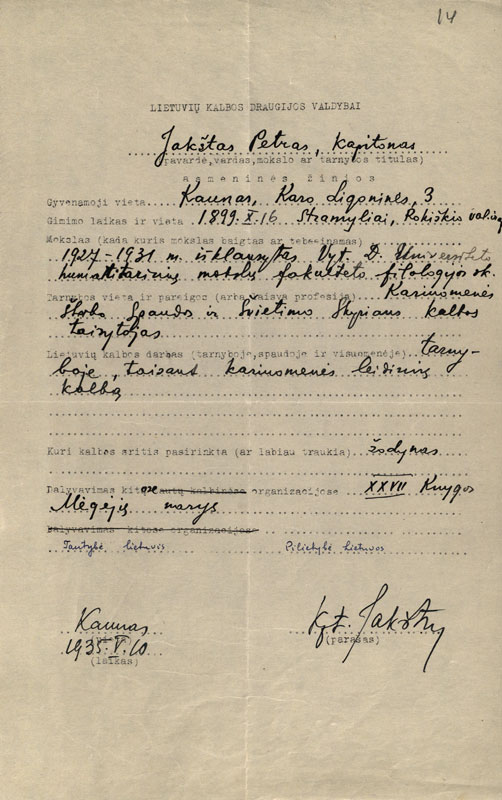 14
LIETUVIŲ KALBOS DRAUGIJOS VALDYBAI
Jakštas Petras, kapitonas
(pavardė, vardas, mokslo ar tarnybos titulas)
asmeninės žinios
Gyvenamoji vieta Kaunas, Karo ligoninės, 3
Gimimo laikas ir vieta 1899.X.16 Stromyliai, Rokiškio
Mokslas (kada kuris mokslas baigtas ar tebeeinamas)
1927-1931 m. išklausytas Vyt. D. Universiteto
mokslų fakulteto filologijos sk.
Tarnybos vieta ir pareigos (arba laisva profesija) Kariuomenės
Štabo Spaudos ir Švietimo Skyriaus kalbos
taisytojas
Lietuvių kalbos darbas (tarnyboje, spaudoje ir visuomenėje) tarny-
boje, taisant kariuomenės leidinių
kalbą
Kuri kalbos sritis pasirinkta (ar labiau traukia) žodynas
Dalyvavimas kitose organizacijose XXVII Knygos
Mėgėjų narys
Dalyvavimas kitose organizacijose
Tautybė lietuvis Pilietybė Lietuvos
Kaunas
1935.V.10
(laikas)
Kpt. Jakštas
(parašas)